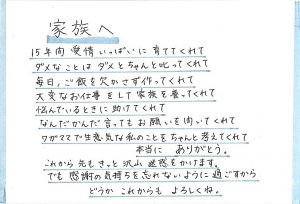 家族へ
15年間愛情いっぱいに育ててくれて
ダメなことはダメとちゃんと叱ってくれて
毎日、ご飯を欠かさず作ってくれて
大変なお仕事をして家族を養ってくれて
悩んでいるときに助けてくれて
なんだかんだ言ってもお願いを聞いてくれて
ワガママで生意気な私のことをちゃんと考えてくれて
本当に ありがとう。
これから先もきっと沢山迷惑をかけます。
でも感謝の気持ちを忘れないように過ごすから
どうか これからも よろしくね。